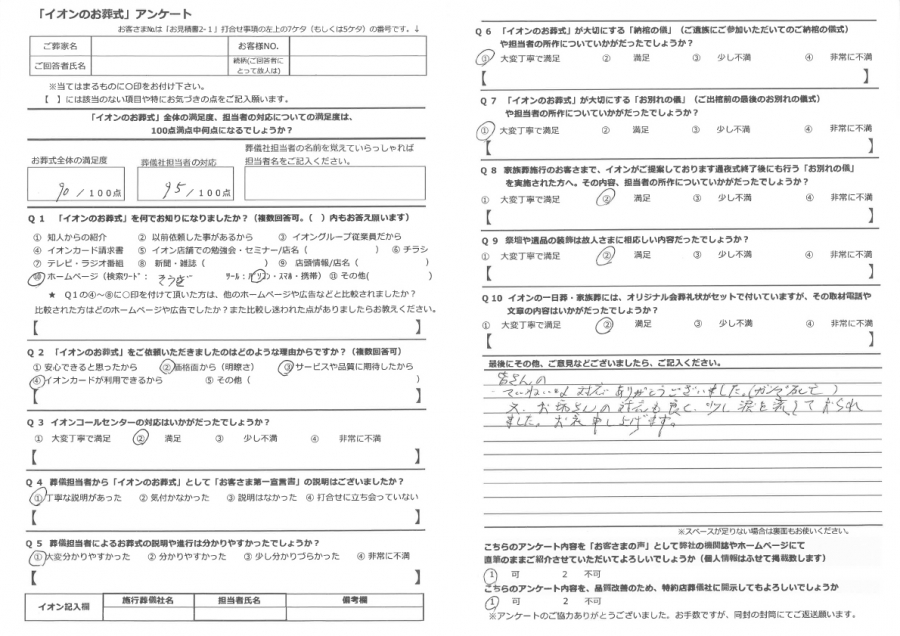 「イオンのお葬式」アンケート
お客さまNo.は「お見積書2-1」打合せ事項の左上の7ケタ（もしくは5ケタ）の番号です。↓
ご葬家名 お客様NO.
ご回答者氏名 続柄(ご回答者にとって故人は)
※当てはまるものに〇印をお付け下さい。
【 】には該当のない項目や特にお気づきの点をご記入願います。
「イオンのお葬式」全体の満足度、担当者の対応についての満足度は、
100点満点中何点になるでしょうか？
お葬式全体の満足度 葬儀社担当者の対応 葬儀社担当者の名前を覚えていらっしゃれば
担当者名をご記入ください。
90 / 100点 95 / 100点
Q 1 「イオンのお葬式」を何でお知りになりましたか？（複数回答可。（ ）内もお答え願います）
① 知人からの紹介 ② 以前依頼した事があるから ③ イオングループ従業員だから
④ イオンカード請求書 ⑤ イオン店舗での勉強会・セミナー/店名（ ） ⑥ チラシ
⑦ テレビ・ラジオ番組 ⑧ 新聞・雑誌（ ） ⑨ 店頭情報/店名（ ）
⑩ ホームページ（検索ワード： そうぎ ツール：パソコン・スマホ・携帯） ⑪ その他( )
★ Q1の④～⑧に〇印を付けて頂いた方は、他のホームページや広告などと比較されましたか？
比較された方はどのホームページや広告でしたか？また比較し迷われた点がありましたらお教えください。
【 】
Q 2 「イオンのお葬式」をご依頼いただきましたのはどのような理由からですか？（複数回答可）
① 安心できると思ったから ② 価格面から（明瞭さ） ③ サービスや品質に期待したから
④ イオンカードが利用できるから ⑤ その他（ ）
【 】
Q 3 イオンコールセンターの対応はいかがだったでしょうか？
① 大変丁寧で満足 ② 満足 ③ 少し不満 ④ 非常に不満
【 】
Q 4 葬儀担当者から「イオンのお葬式」として「お客さま第一宣言書」の説明はございましたか？
① 丁寧な説明があった ② 気付かなかった ③ 説明はなかった ④ 打合せに立ち会っていない
【 】
Q 5 葬儀担当者によるお葬式の説明や進行は分かりやすかったでしょうか？
① 大変分かりやすかった ② 分かりやすかった ③ 少し分かりづらかった ④ 非常に不満
【 】
イオン記入欄 施行葬儀社名 担当者氏名 備考欄
Q 6 「イオンのお葬式」が大切にする「納棺の儀」（ご遺族にご参加いただいてのご納棺の儀式）
や担当者の所作についていかがだったでしょうか？
① 大変丁寧で満足 ② 満足 ③ 少し不満 ④ 非常に不満
【 】
Q 7 「イオンのお葬式」が大切にする「お別れの儀」（ご出棺前の最後のお別れの儀式）
や担当者の所作についていかがだったでしょうか？
① 大変丁寧で満足 ② 満足 ③ 少し不満 ④ 非常に不満
【 】
Q 8 家族葬施行のお客さまで、イオンがご提案しております通夜式終了後にも行う「お別れの儀」
を実施された方へ。その内容、担当者の所作についていかがだったでしょうか？
① 大変丁寧で満足 ② 満足 ③ 少し不満 ④ 非常に不満
【 】
Q 9 祭壇や遺品の装飾は故人さまに相応しい内容だったでしょうか？
① 大変丁寧で満足 ② 満足 ③ 少し不満 ④ 非常に不満
【 】
Q 10 イオンの一日葬・家族葬には、オリジナル会葬礼状がセットで付いていますが、その取材電話や
文章の内容はいかがだったでしょうか？
① 大変丁寧で満足 ② 満足 ③ 少し不満 ④ 非常に不満
【 】
最後にその他、ご意見などございましたら、ご記入ください。
皆さんの
ていねいな対応ありがとうございました。
又、お坊さんの対応も良く、少し涙を流しておられ
ました。お礼申し上げます。
※スペースが足りない場合は裏面もお使いください。
こちらのアンケート内容を「お客さまの声」として弊社の機関誌やホームページにて
直筆のままご紹介させていただいてよろしいでしょうか（個人情報はふせて掲載致します）
1 可 2 不可
こちらのアンケート内容を、品質改善のため、特約店葬儀社に開示してもよろしいでしょうか
1 可 2 不可
※アンケートのご協力ありがとうございました。お手数ですが、同封の封筒にてご返送願います。